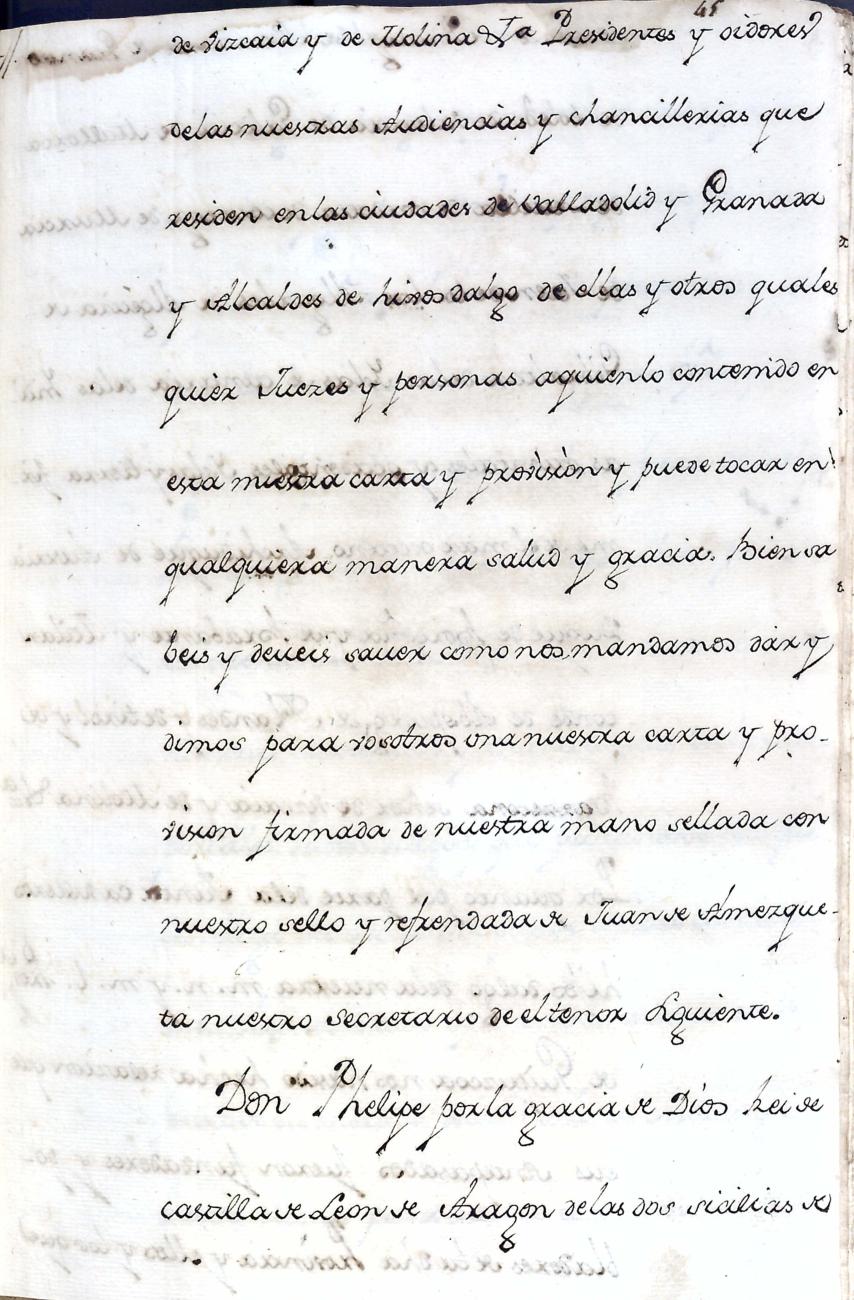 45
de vizcaia y de Molina &ra Presidentes y oidores
delas nuestras Audiencias y chancillerias que
residen en las ciudades de Valladolid y Granada
y Alcaldes de hixos dalgo de ellas y otros quales
quier Juezes y personas aquienlo contenido en
esta nuestra carta y provision y puede tocar en
qualquiera manera salud y gracia. Bien sa
beis y deveis saver como nos mandamos dar y
dimos para vosotros una nuestra carta y pro-
vision firmada de nuestra mano sellada con
nuestro sello y refrendada de Juan de Amezque-
ta nuestro secretario de el tenor siguiente.
Don Phelipe por la gracia de Dios Rei de
castilla de Leon de Aragon de las dos sicilias de